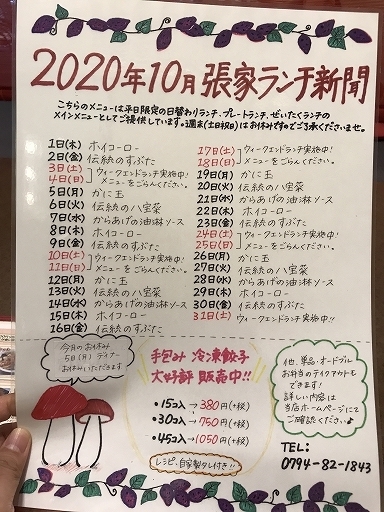 2020年10月 張家ランチ新聞
こちらのメニューは平日限定の日替わりランチ、プレートランチ、ぜいたくランチの
メインメニューとしてご提供しています。週末(土日祝日)はお休みですのでご了承くださいませ。
1日(木) ホイコーロー
2日(金) 伝統のすぶた
3日(土) ウィークエンドランチ実施中!
4日(日) メニューをごらんください。
5日(月) かに玉
6日(火) 伝統の八宝菜
7日(水) からあげの油淋ソース
8日(木) ホイコーロー
9日(金) 伝統のすぶた
10日(土) ウィークエンドランチ実施中!
11日(日) メニューをごらんください。
12日(月) かに玉
13日(火) 伝統の八宝菜
14日(水) からあげの油淋ソース
15日(木) ホイコーロー
16日(金) 伝統のすぶた
17日(土) ウィークエンドランチ実施中!
18日(日) メニューをごらんください。
19日(月) かに玉
20日(火) 伝統の八宝菜
21日(水) からあげの油淋ソース
22日(木) ホイコーロー
23日(金) 伝統のすぶた
24日(土) ウィークエンドランチ実施中!
25日(日) メニューをごらんください。
26日(月) かに玉
27日(火) 伝統の八宝菜
28日(水) からあげの油淋ソース
29日(木) ホイコーロー
30日(金) 伝統のすぶた
31日(土) ウィークエンドランチ実施中!!
今月のお休み
5日(月) ディナー
お休みいただきます
手包み 冷凍餃子
大好評 販売中!!
・15コ入→380円(+税)
・30コ入→750円(+税)
・45コ入→1050円(+税)
レシピ、自家製タレ付き!!
他、単品・オードブル
お弁当のテイクアウトも
できます!
詳しい内容は
当店ホームページにて
ご確認ください♪
TEL:
0794-82-1843